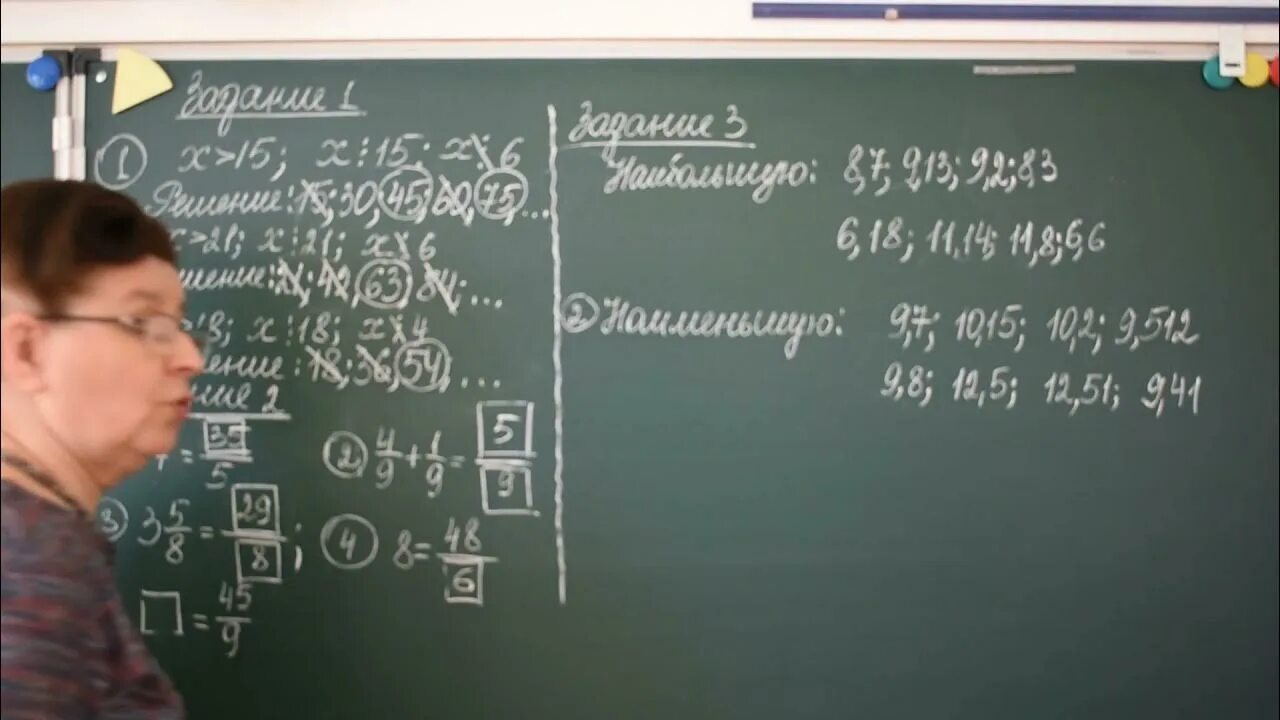 Задание 1
① x>15; x⋮15; x⋮̸6
Решение: 15; 30; 45; 60; 75; ...
x>21; x⋮21; x⋮̸6
шение: 21; 42; 63; 84; ...
>18; x⋮18; x⋮̸4
ение: 18; 36; 54; ...
ние 2
7 = 35/5
② 4/9 + 1/9 = 5/9
③ 3 5/8 = 29/8;
④ 8 = 48/6
□ = 45/9
Задание 3
Наибольшую: 8,7; 9,13; 9,2; 8,3
6,18; 11,14; 11,8; 6,6
② Наименьшую: 9,7; 10,15; 10,2; 9,512
9,8; 12,5; 12,51; 9,41